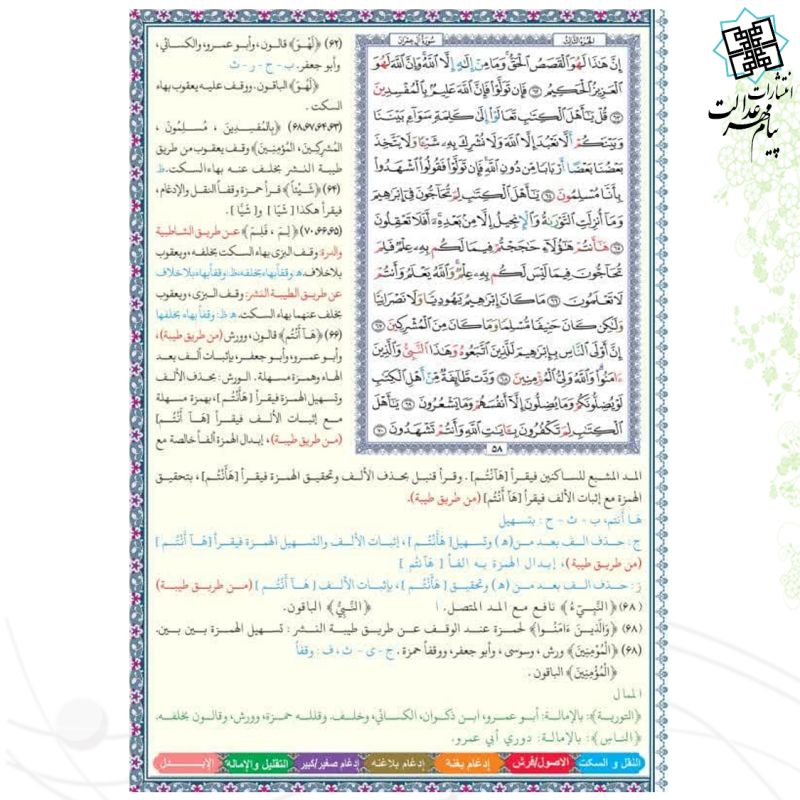 انتشارات
پیام مهر عدالت
الجزء الثالث
سورة آل عمران
إِنَّ هَٰذَا لَهُوَ ٱلْقَصَصُ ٱلْحَقُّ وَمَا مِنْ إِلَٰهٍ إِلَّا ٱللَّهُ وَإِنَّ ٱللَّهَ لَهُوَ
ٱلْعَزِيزُ ٱلْحَكِيمُ ٦٢ فَإِن تَوَلَّوْا۟ فَإِنَّ ٱللَّهَ عَلِيمٌۢ بِٱلْمُفْسِدِينَ
٦٣ قُلْ يَٰٓأَهْلَ ٱلْكِتَٰبِ تَعَالَوْا۟ إِلَىٰ كَلِمَةٍ سَوَآءٍۭ بَيْنَنَا
وَبَيْنَكُمْ أَلَّا نَعْبُدَ إِلَّا ٱللَّهَ وَلَا نُشْرِكَ بِهِۦ شَيْـًٔا وَلَا يَتَّخِذَ
بَعْضُنَا بَعْضًا أَرْبَابًا مِّن دُونِ ٱللَّهِ فَإِن تَوَلَّوْا۟ فَقُولُوا۟ ٱشْهَدُوا۟
بِأَنَّا مُسْلِمُونَ ٦٤ يَٰٓأَهْلَ ٱلْكِتَٰبِ لِمَ تُحَآجُّونَ فِىٓ إِبْرَٰهِيمَ
وَمَآ أُنزِلَتِ ٱلتَّوْرَىٰةُ وَٱلْإِنجِيلُ إِلَّا مِنۢ بَعْدِهِۦٓ أَفَلَا تَعْقِلُونَ
٦٥ هَٰٓأَنتُمْ هَٰٓؤُلَآءِ حَٰجَجْتُمْ فِيمَا لَكُم بِهِۦ عِلْمٌ فَلِمَ
تُحَآجُّونَ فِيمَا لَيْسَ لَكُم بِهِۦ عِلْمٌ وَٱللَّهُ يَعْلَمُ وَأَنتُمْ
لَا تَعْلَمُونَ ٦٦ مَا كَانَ إِبْرَٰهِيمُ يَهُودِيًّا وَلَا نَصْرَانِيًّا
وَلَٰكِن كَانَ حَنِيفًا مُّسْلِمًا وَمَا كَانَ مِنَ ٱلْمُشْرِكِينَ ٦٧
إِنَّ أَوْلَى ٱلنَّاسِ بِإِبْرَٰهِيمَ لَلَّذِينَ ٱتَّبَعُوهُ وَهَٰذَا ٱلنَّبِىُّ وَٱلَّذِينَ
ءَامَنُوا۟ وَٱللَّهُ وَلِىُّ ٱلْمُؤْمِنِينَ ٦٨ وَدَّت طَّآئِفَةٌ مِّنْ أَهْلِ ٱلْكِتَٰبِ
لَوْ يُضِلُّونَكُمْ وَمَا يُضِلُّونَ إِلَّآ أَنفُسَهُمْ وَمَا يَشْعُرُونَ ٦٩ يَٰٓأَهْلَ
ٱلْكِتَٰبِ لِمَ تَكْفُرُونَ بِـَٔايَٰتِ ٱللَّهِ وَأَنتُمْ تَشْهَدُونَ ٧٠
٥٨
(٦٢) ﴿لَهْوَ﴾ قالون، وأبو عمرو، والكسائي،
وأبو جعفر. ب - ج - ر - ث
﴿لَهُوَ﴾ الباقون. ووقف عليه يعقوب بهاء
السكت.
(٦٣،٦٤،٦٧،٦٨) ﴿بِالمُفسِدِينَ ، مُسلِمُونَ ،
المُشرِكِينَ ، المُؤمِنِينَ﴾ وقف يعقوب من طريق
طيبة النشر بخلف عنه بهاء السكت. ظ
(٦٤) ﴿شَيْئاً﴾ قرأ حمزة وقفاً النقل والإدغام،
فيقرأ هكذا [شَيَا] و[شَيًّا].
(٦٥،٦٦،٧٠) ﴿لِمَ ، فَلِمَ﴾ عن طريق الشاطبية
والدرة: وقف البزي بهاء السكت بخلفه، ويعقوب
بلاخلاف. هـ وقفاً بهاء بخلفه، ظ: وقفاً بهاء بلاخلاف
عن طريق الطيبة النشر: وقف البزى، ويعقوب
بخلف عنهما بهاء السكت. هـ ظ: وقفاً بهاء بخلفها
(٦٦) ﴿هَآ أَنْتُم﴾ قالون، وورش (من طريق طيبة)،
وأبو عمرو، وأبو جعفر، بإثبات ألف بعد
الهاء وهمزة مسهلة. الورش: بحذف الألف
وتسهيل الهمزة فيقرأ [هَأَنْتُم]، بهمزة مسهلة
مع إثبات الألف فيقرأ [هَآ أَنْتُم]
(من طريق طيبة)، إبدال الهمزة ألفاً خالصة مع
المد المشبع للساكنين فيقرأ [هَآنْتُم]. وقرأ قنبل بحذف الألف وتحقيق الهمزة فيقرأ [هَأَنْتُم]، بتحقيق
الهمزة مع إثبات الألف فيقرأ [هَآ أَنْتُم] (من طريق طيبة).
هَا أَنتم، ب - ث - ح : بتسهيل
ج: حذف الف بعد من (هـ) وتسهيل [هَأَنْتُم]، إثبات الألف والتسهيل الهمزة فيقرأ [هَآ أَنْتُم]
(من طريق طيبة)، إبدال الهمزة به الفا [هَآنْتُم]
ز: حذف الف بعد من (هـ) وتحقيق [هَأَنْتُم]، بإثبات الألف [هَآ أَنْتُم] (من طريق طيبة)
(٦٨) ﴿النَّبِيءُ﴾ نافع مع المد المتصل. ا ﴿النَّبِيُّ﴾ الباقون.
(٦٨) ﴿وَالَّذِينَ ءَامَنُوا﴾ لحمزة عند الوقف عن طريق طيبة النشر: تسهيل الهمزة بين بين.
(٦٨) ﴿الْمُومِنِينَ﴾ ورش، وسوسى، وأبو جعفر، ووقفاً حمزة. ج - ى - ث، ف: وقفاً
﴿الْمُؤْمِنِينَ﴾ الباقون.
الممال
﴿التورية﴾: بالإمالة: أبو عمرو، ابن ذكوان، الكسائي، وخلف. وقلله حمزة، وورش، وقالون بخلفه.
﴿الناس﴾: بالإمالة: دوري أبي عمرو.
النقل و السكت
الاصول/فرش
إدغام بغنه
إدغام بلاغنه
إدغام صغير/كبير
التقليل والإماله
الإبدال